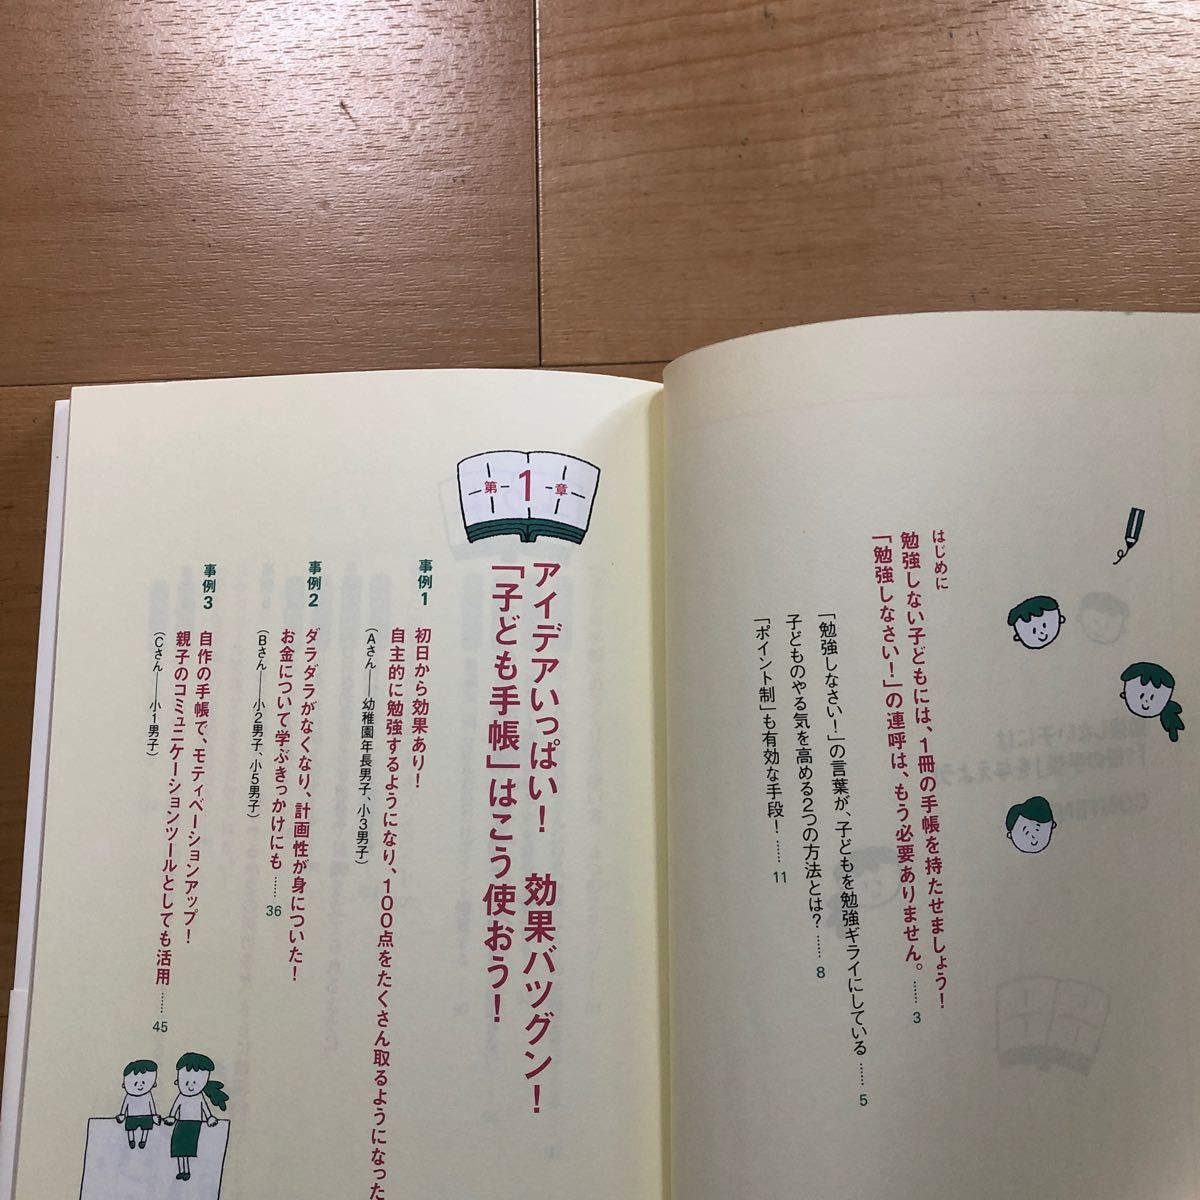 はじめに
勉強しない子どもには、1冊の手帳を持たせましょう!
「勉強しなさい!」の連呼は、もう必要ありません。……3
「勉強しなさい!」の言葉が、子どもを勉強ギライにしている……5
子どものやる気を高める2つの方法とは?……8
「ポイント制」も有効な手段!……11
第1章
アイデアいっぱい! 効果バツグン!
「子ども手帳」はこう使おう!
事例1
初日から効果あり!
自主的に勉強するようになり、100点をたくさん取るようになった
(Aさん——幼稚園年長男子、小3男子)
事例2
ダラダラがなくなり、計画性が身についた!
お金について学ぶきっかけにも……36
(Bさん——小2男子、小5男子)
事例3
自作の手帳で、モティベーションアップ!
親子のコミュニケーションツールとしても活用……45
(Cさん——小1男子)